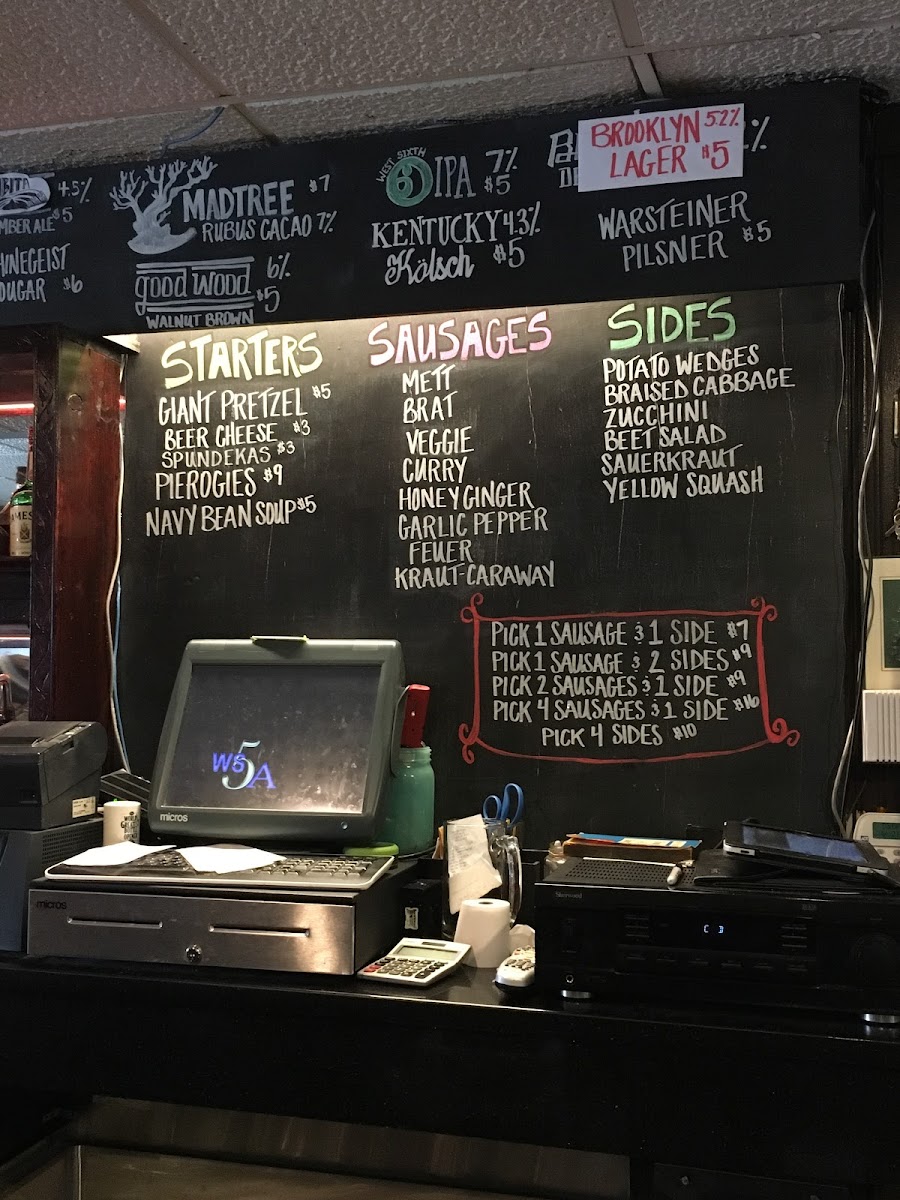 4.5%
$5
$6
MADTREE $7
RUBUS CACAO 7%
good wood 6%
$5
WALNUT BROWN
WEST SIXTH
6 IPA 7%
$5
KENTUCKY 4.3%
Kölsch $5
BROOKLYN 5.2%
LAGER $5
%
WARSTEINER
PILSNER $5
STARTERS
GIANT PRETZEL $5
BEER CHEESE $3
SPUNDEKAS $3
PIEROGIES $9
NAVY BEAN SOUP $5
SAUSAGES
METT
BRAT
VEGGIE
CURRY
HONEY GINGER
GARLIC PEPPER
FEUER
KRAUT-CARAWAY
SIDES
POTATO WEDGES
BRAISED CABBAGE
ZUCCHINI
BEET SALAD
SAUERKRAUT
YELLOW SQUASH
PICK 1 SAUSAGE & 1 SIDE $7
PICK 1 SAUSAGE & 2 SIDES $9
PICK 2 SAUSAGES & 1 SIDE $9
PICK 4 SAUSAGES & 1 SIDE $16
PICK 4 SIDES $10
WS5A
micros
micros
Sherwood
CD